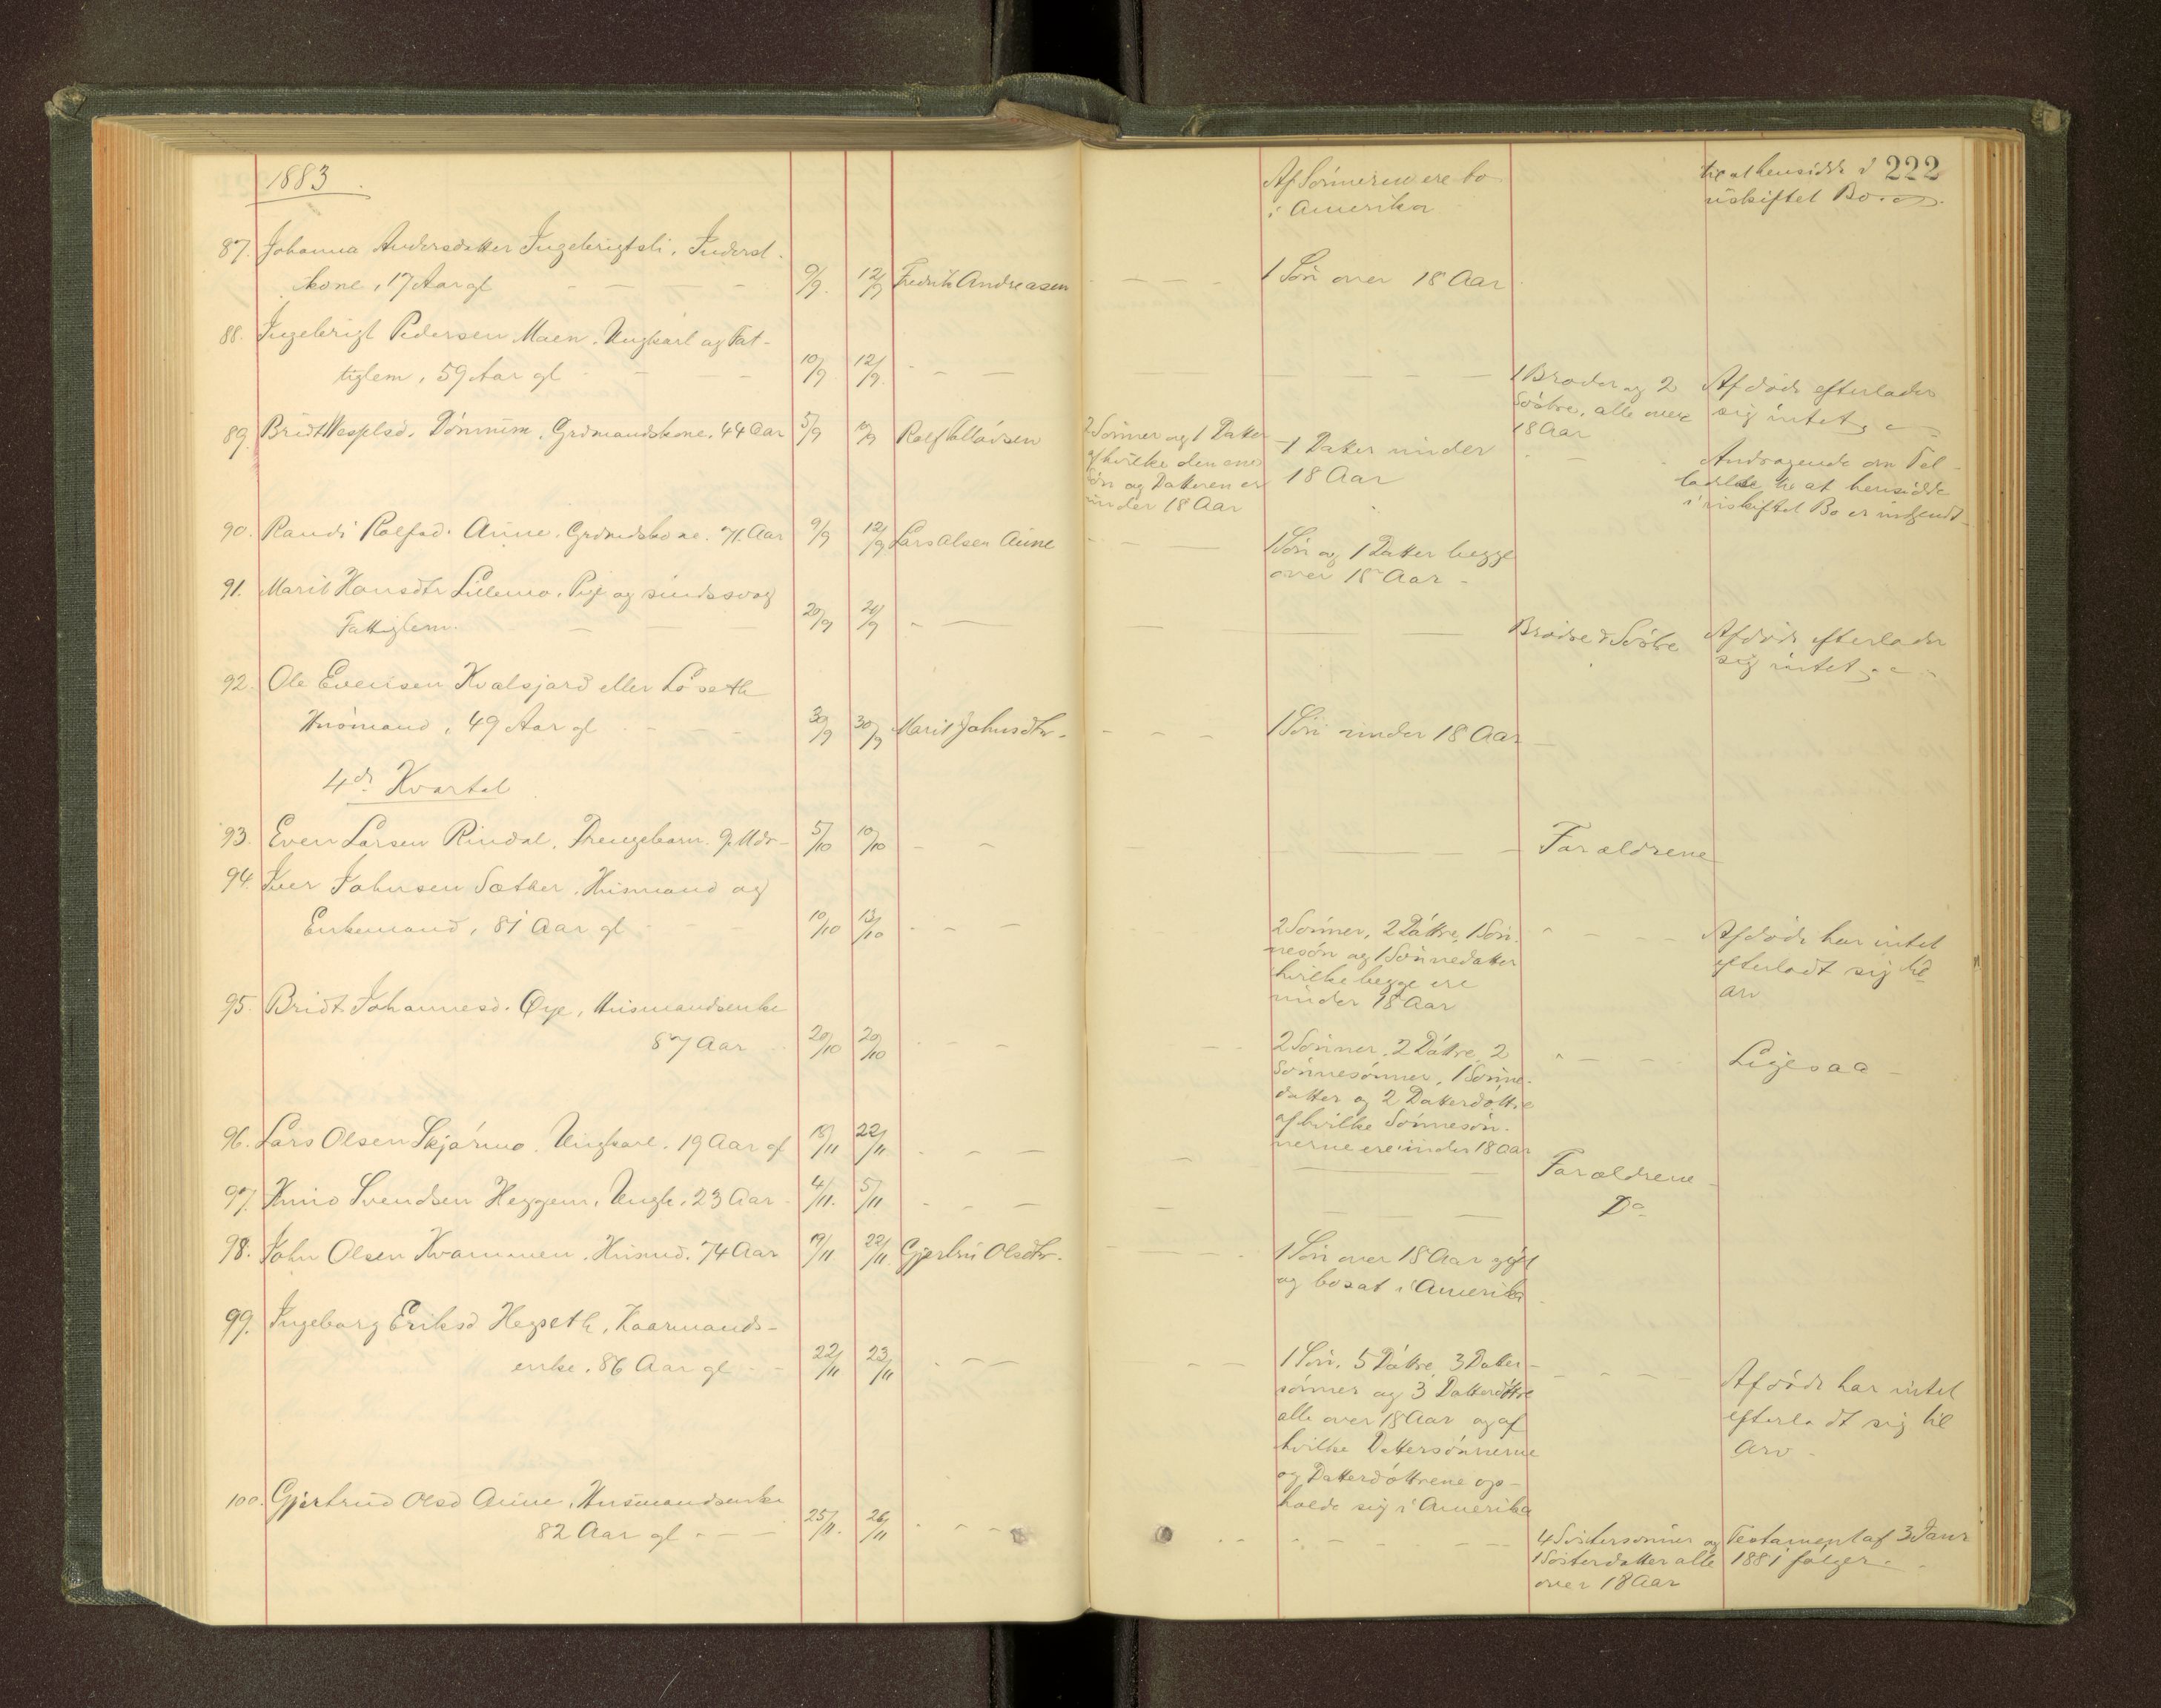 1883
Af Sønnerne ere to
i Amerika
til at hensidde i 222
uskiftet Bo.
87. Johanna Andersdatter Ingebrigtsli, Inderst-
kone, 17 Aar gl 9/9. 12/9 Fredrik Andreasen 1 Søn over 18 Aar
88. Ingebrigt Pedersen Moen, Ungkarl og Fat-
tiglem, 59 Aar gl 10/9 12/9. 1 Broder og 2
Søstre, alle over
18 Aar
Afdøde efterlader
sig intet
89. Bridt Dønnum, Grdmandskone, 44 Aar 5/9 Rolf 2 Sønner og 1 Datter
af hvilke den ene
Søn og Datteren er
under 18 Aar
1 Datter under
18 Aar
Andragende om Til-
ladelse til at hensidde
i uskiftet Bo er indsendt
90. Randi Rolfsd. Aune, Grdmdskone, 71 Aar 9/9 12/9 Lars Olsen Aune 1 Søn og 1 Datter begge
over 18 Aar
91. Marit Hansdtr Lillemo, Pige og sindssvag
Fattiglem. 20/9 20/9 Brødre & Søstre Afdøde efterlader
sig intet
92. Ole Evensen Kvalsjard eller Løseth
Husmand, 49 Aar gl 30/9 30/9 Marit Johnsdtr. 1 Søn under 18 Aar
4de Kvartal
93. Even Larsen Rindal, Drengebarn. 9 Mdr 5/10 10/10 Forældrene
94. Iver Johnsen Sæther, Husmand og
Enkemand, 81 Aar gl 10/10 13/10 2 Sønner, 2 Døttre, 1 Søn-
nesøn og 1 Sønnedatter
hvilke begge ere
under 18 Aar
Afdøde har intet
efterladt sig til
Arv
95. Bridt Johannesd. Øye, Husmandsenke
87 Aar 20/10 20/10 2 Sønner, 2 Døttre, 2
Sønnesønner, 1 Sønne-
datter og 2 Datterdøttre
af hvilke Sønnesøn-
nerne ere under 18 Aar
Ligesaa
96. Lars Olsen Skjørmo, Ungkarl, 19 Aar gl 18/11 22/11 Forældrene
97. Knud Svendsen Heggem, Ungk. 23 Aar 4/11. 5/11 Do
98. John Olsen Kvammen, Husmd. 74 Aar 19/11 22/11 Gjertru Olsdtr. 1 Søn over 18 Aar gift
og bosat i Amerika
99. Ingeborg Eriksd Hegseth, Kaarmands-
enke, 86 Aar gl 22/11 23/11 1 Søn, 5 Døttre, 3 Datter-
sønner og 3 Datterdøttre
alle over 18 Aar og af
hvilke Dattersønnerne
og Datterdøttrene op-
holde sig i Amerika
Afdøde har intet
efterladt sig til
Arv
100. Gjertrud Olsd Aune, Husmandsenke
82 Aar gl 25/11. 26/11 4 Søstersønner og
1 Søsterdatter alle
over 18 Aar
Testament af 3 Janr
1881 følger.